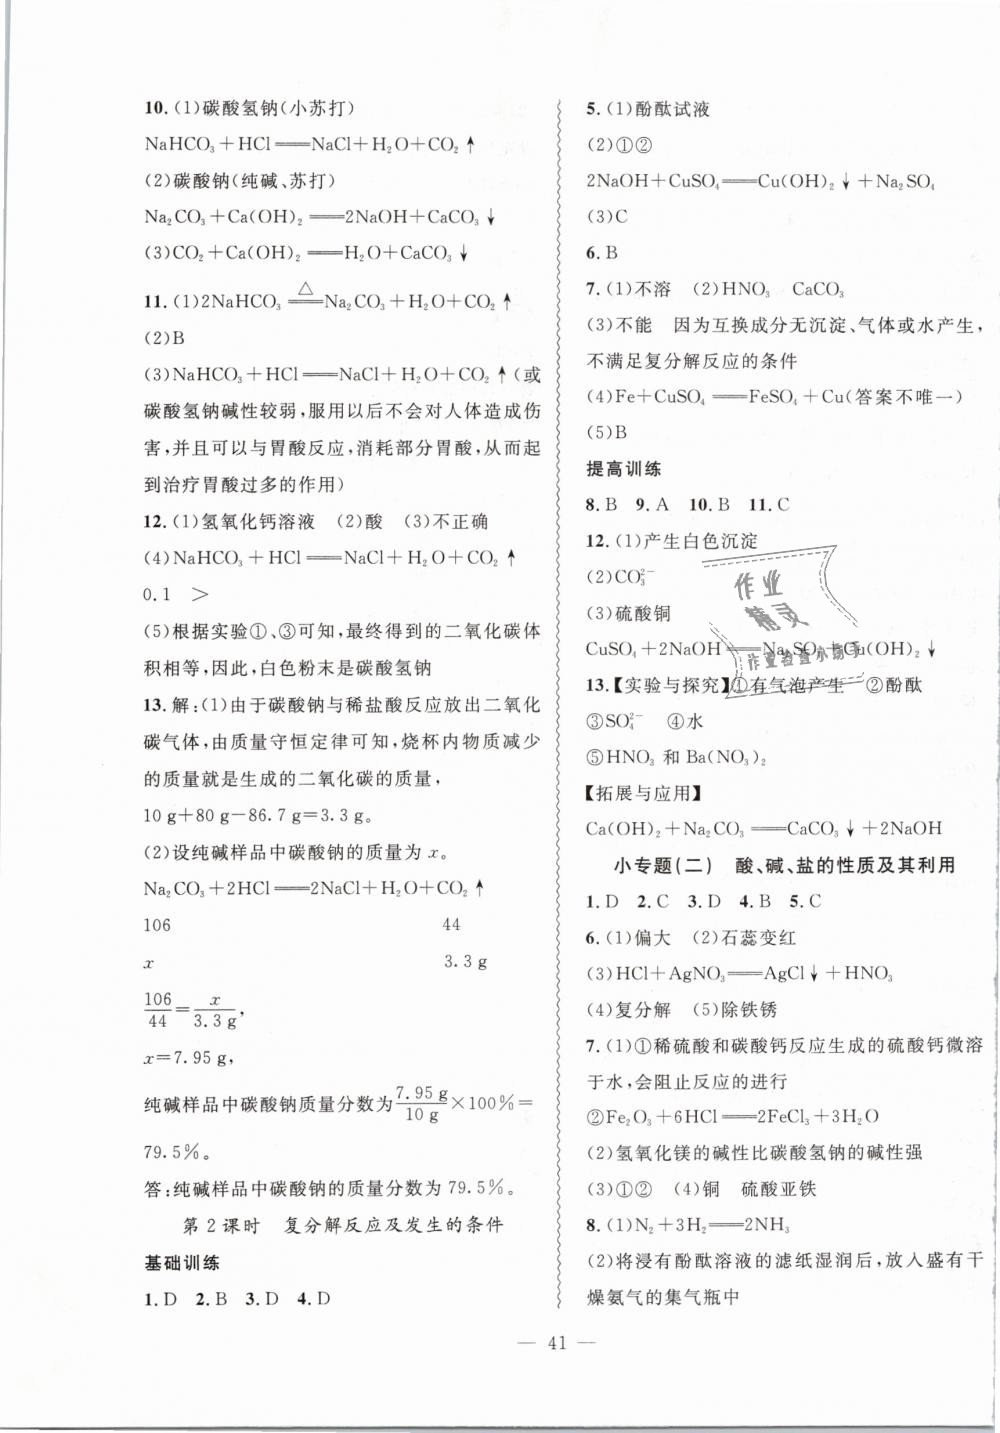 10.(1)碳酸氢钠(小苏打)
NaHCO₃+HCl══NaCl+H₂O+CO₂↑
(2)碳酸钠(纯碱、苏打)
Na₂CO₃+Ca(OH)₂══2NaOH+CaCO₃↓
(3)CO₂+Ca(OH)₂══H₂O+CaCO₃↓
11.(1)2NaHCO₃ ══△ Na₂CO₃+H₂O+CO₂↑
(2)B
(3)NaHCO₃+HCl══NaCl+H₂O+CO₂↑(或
碳酸氢钠碱性较弱,服用以后不会对人体造成伤
害,并且可以与胃酸反应,消耗部分胃酸,从而起
到治疗胃酸过多的作用)
12.(1)氢氧化钙溶液 (2)酸 (3)不正确
(4)NaHCO₃+HCl══NaCl+H₂O+CO₂↑
0.1 >
(5)根据实验①、③可知,最终得到的二氧化碳体
积相等,因此,白色粉末是碳酸氢钠
13.解:(1)由于碳酸钠与稀盐酸反应放出二氧化
碳气体,由质量守恒定律可知,烧杯内物质减少
的质量就是生成的二氧化碳的质量,
10 g+80 g−86.7 g=3.3 g。
(2)设纯碱样品中碳酸钠的质量为 x。
Na₂CO₃+2HCl══2NaCl+H₂O+CO₂↑
106 44
x 3.3 g
106/44=x/3.3 g,
x=7.95 g,
纯碱样品中碳酸钠质量分数为7.95 g/10 g×100%=
79.5%。
答:纯碱样品中碳酸钠的质量分数为 79.5%。
第 2 课时 复分解反应及发生的条件
基础训练
1.D 2.B 3.D 4.D
5.(1)酚酞试液
(2)①②
2NaOH+CuSO₄══Cu(OH)₂↓+Na₂SO₄
(3)C
6.B
7.(1)不溶 (2)HNO₃ CaCO₃
(3)不能 因为互换成分无沉淀、气体或水产生,
不满足复分解反应的条件
(4)Fe+CuSO₄══FeSO₄+Cu(答案不唯一)
(5)B
提高训练
8.B 9.A 10.B 11.C
12.(1)产生白色沉淀
(2)CO₃²⁻
(3)硫酸铜
CuSO₄+2NaOH══Na₂SO₄+Cu(OH)₂↓
作业
精灵
作业检查小助手
13.【实验与探究】①有气泡产生 ②酚酞
③SO₄²⁻ ④水
⑤HNO₃ 和 Ba(NO₃)₂
【拓展与应用】
Ca(OH)₂+Na₂CO₃══CaCO₃↓+2NaOH
小专题(二) 酸、碱、盐的性质及其利用
1.D 2.C 3.D 4.B 5.C
6.(1)偏大 (2)石蕊变红
(3)HCl+AgNO₃══AgCl↓+HNO₃
(4)复分解 (5)除铁锈
7.(1)①稀硫酸和碳酸钙反应生成的硫酸钙微溶
于水,会阻止反应的进行
②Fe₂O₃+6HCl══2FeCl₃+3H₂O
(2)氢氧化镁的碱性比碳酸氢钠的碱性强
(3)①② (4)铜 硫酸亚铁
8.(1)N₂+3H₂══2NH₃
(2)将浸有酚酞溶液的滤纸湿润后,放入盛有干
燥氨气的集气瓶中
— 41 —